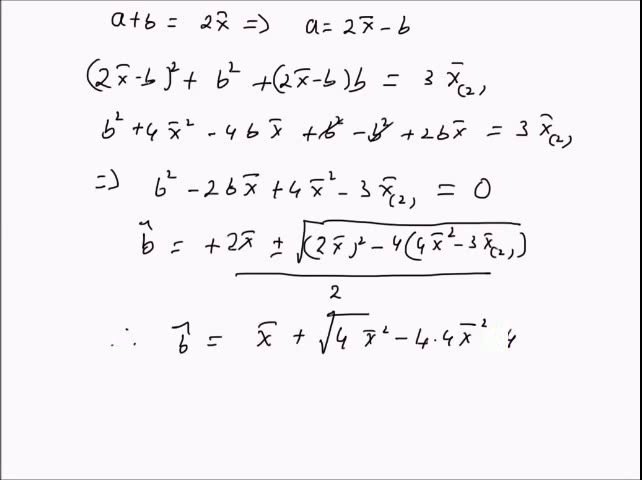 a+b = 2x̄ => a = 2x̄ - b
(2x̄-b)² + b² + (2x̄-b)b = 3 x̄₍₂₎
b² + 4x̄² - 4bx̄ + b² - b² + 2bx̄ = 3 x̄₍₂₎
=> b² - 2bx̄ + 4x̄² - 3x̄₍₂₎ = 0
b̂ = +2x̄ ± √((2x̄)² - 4(4x̄² - 3x̄₍₂₎))
2
∴ b̂ = x̄ + √4 x̄² - 4.4x̄²